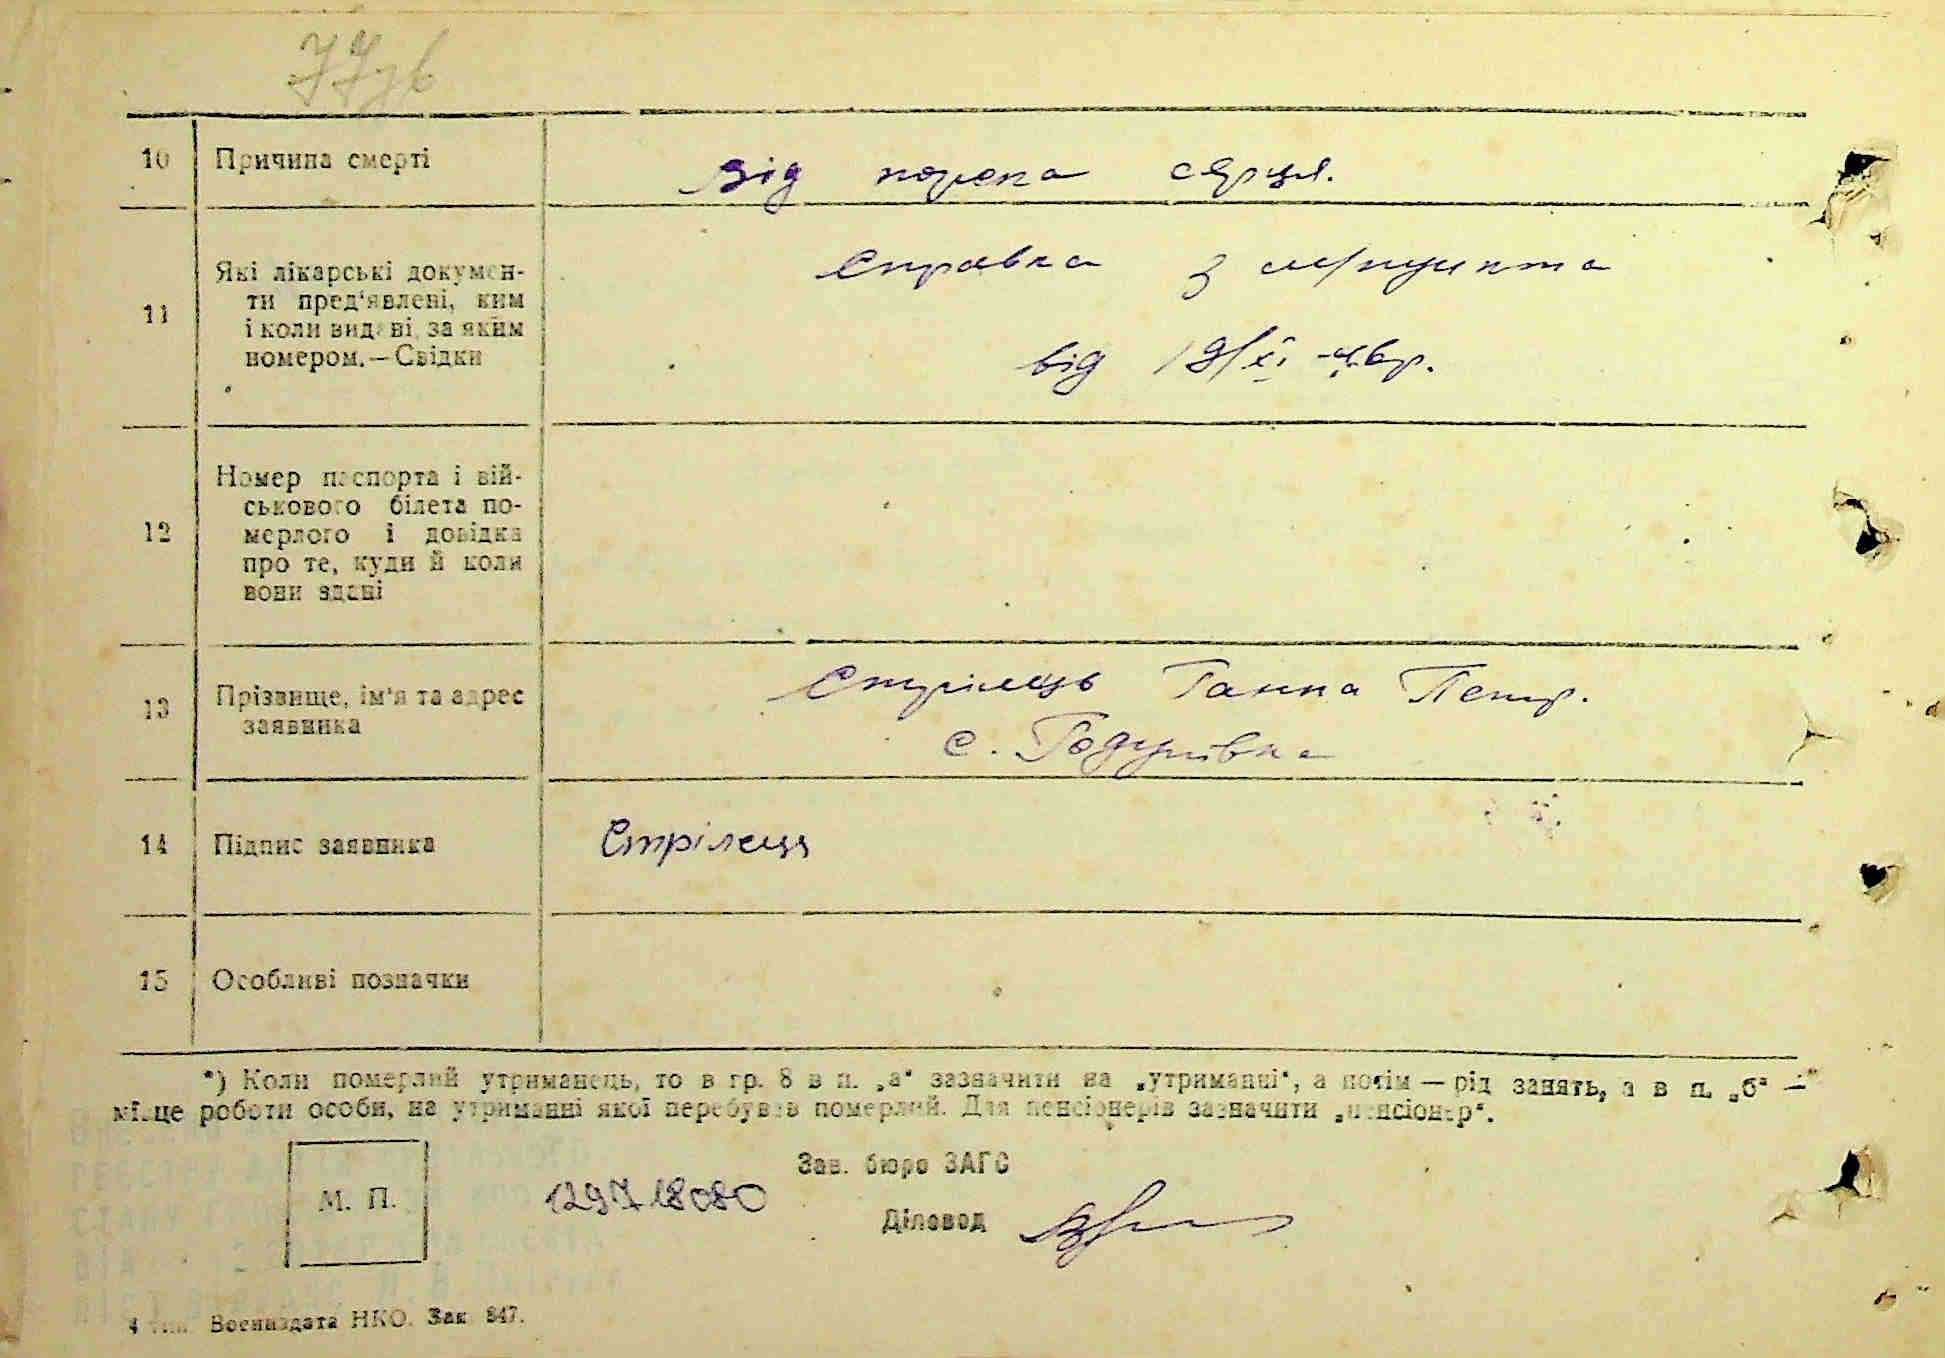 77зв
10 Причина смерті
Від порока серця.
11 Які лікарські докумен-
ти пред'явлені, ким
і коли видані, за яким
номером.—Свідки
Справка з м/пункта
від 19/XI-46р.
12 Номер паспорта і вій-
ськового білета по-
мерлого і довідка
про те, куди й коли
вони здані
13 Прізвище, ім'я та адрес
заявника
Стрілець Ганна Петр.
с. Годунівка
14 Підпис заявника
Стрілець
15 Особливі позначки
*) Коли померлий утриманець, то в гр. 8 в п. „а“ зазначити на „утриманні“, а потім — рід занять, а в п. „б“ —
місце роботи особи, на утриманні якої перебував померлий. Для пенсіонерів зазначити „пенсіонер“.
Зав. бюро ЗАГС
М. П.
129718080
Діловод
4 тип. Воениздата НКО. Зак 847.